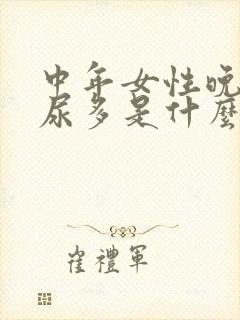 中年女性晚
尿多是什麼
崔禮軍